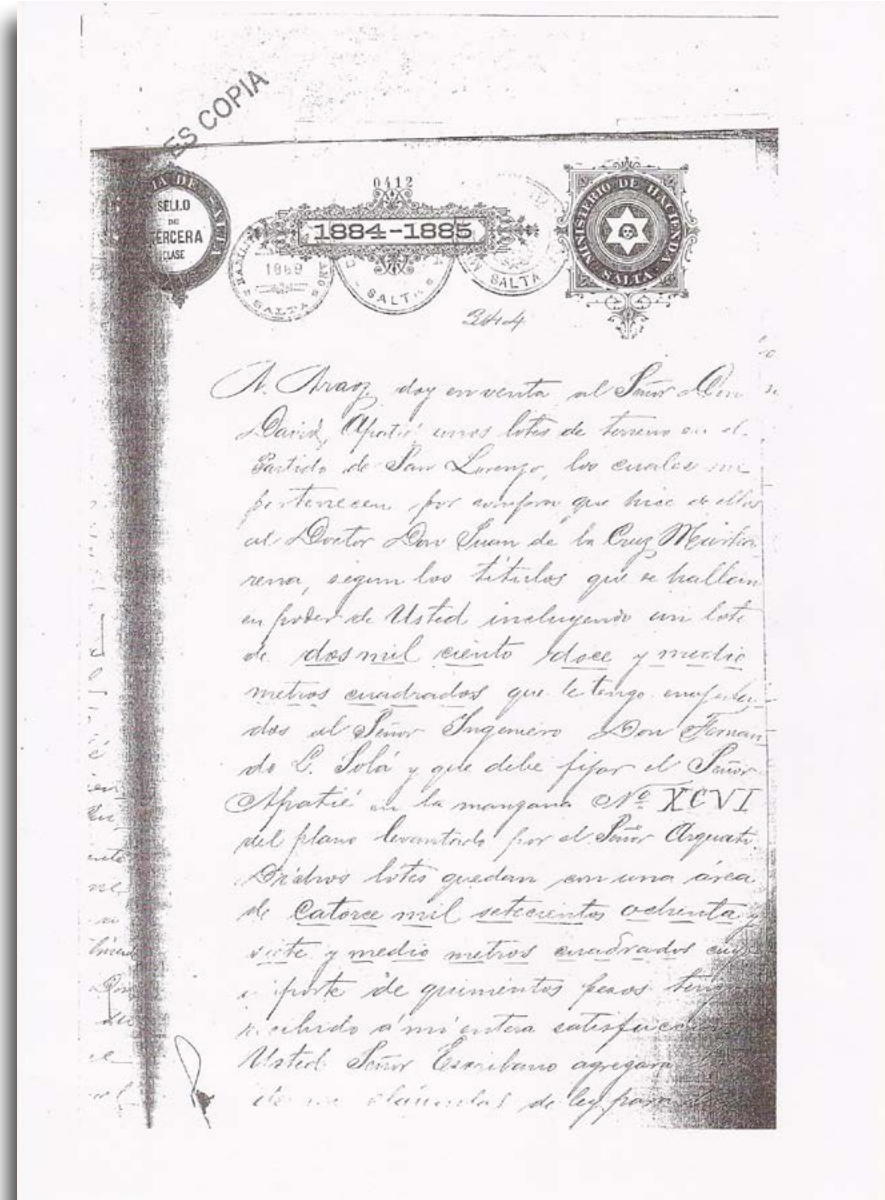 ES COPIA
SELLO
DE
TERCERA
CLASE
0412
1884-1885
1869
SALTA
SALTA
SALTA
MINISTERIO DE HACIENDA
SALTA
344
A. Araoz, doy en venta al Señor Don
David Apatié unos lotes de terreno en el
Partido de San Lorenzo, los cuales me
pertenecen por compra que hice de ellos
al Doctor Don Juan de la Cruz
segun los titulos que se hallan
en poder de Usted incluyendo un lote
de dos mil ciento doce y medio
metros cuadrados que le tengo
al Señor Ingeniero Don Fernan
do C. Solá y que debe fijar el Señor
Apatié en la manzana Nº XCVI
del plano levantado por el Señor Arquati.
Dichos lotes quedan con una área
de Catorce mil setecientos ochenta y
siete y medio metros cuadrados cuyo
importe de quinientos pesos tengo
recibido a mi entera satisfaccion
Usted Señor Escribano agregará
clausulas de ley para